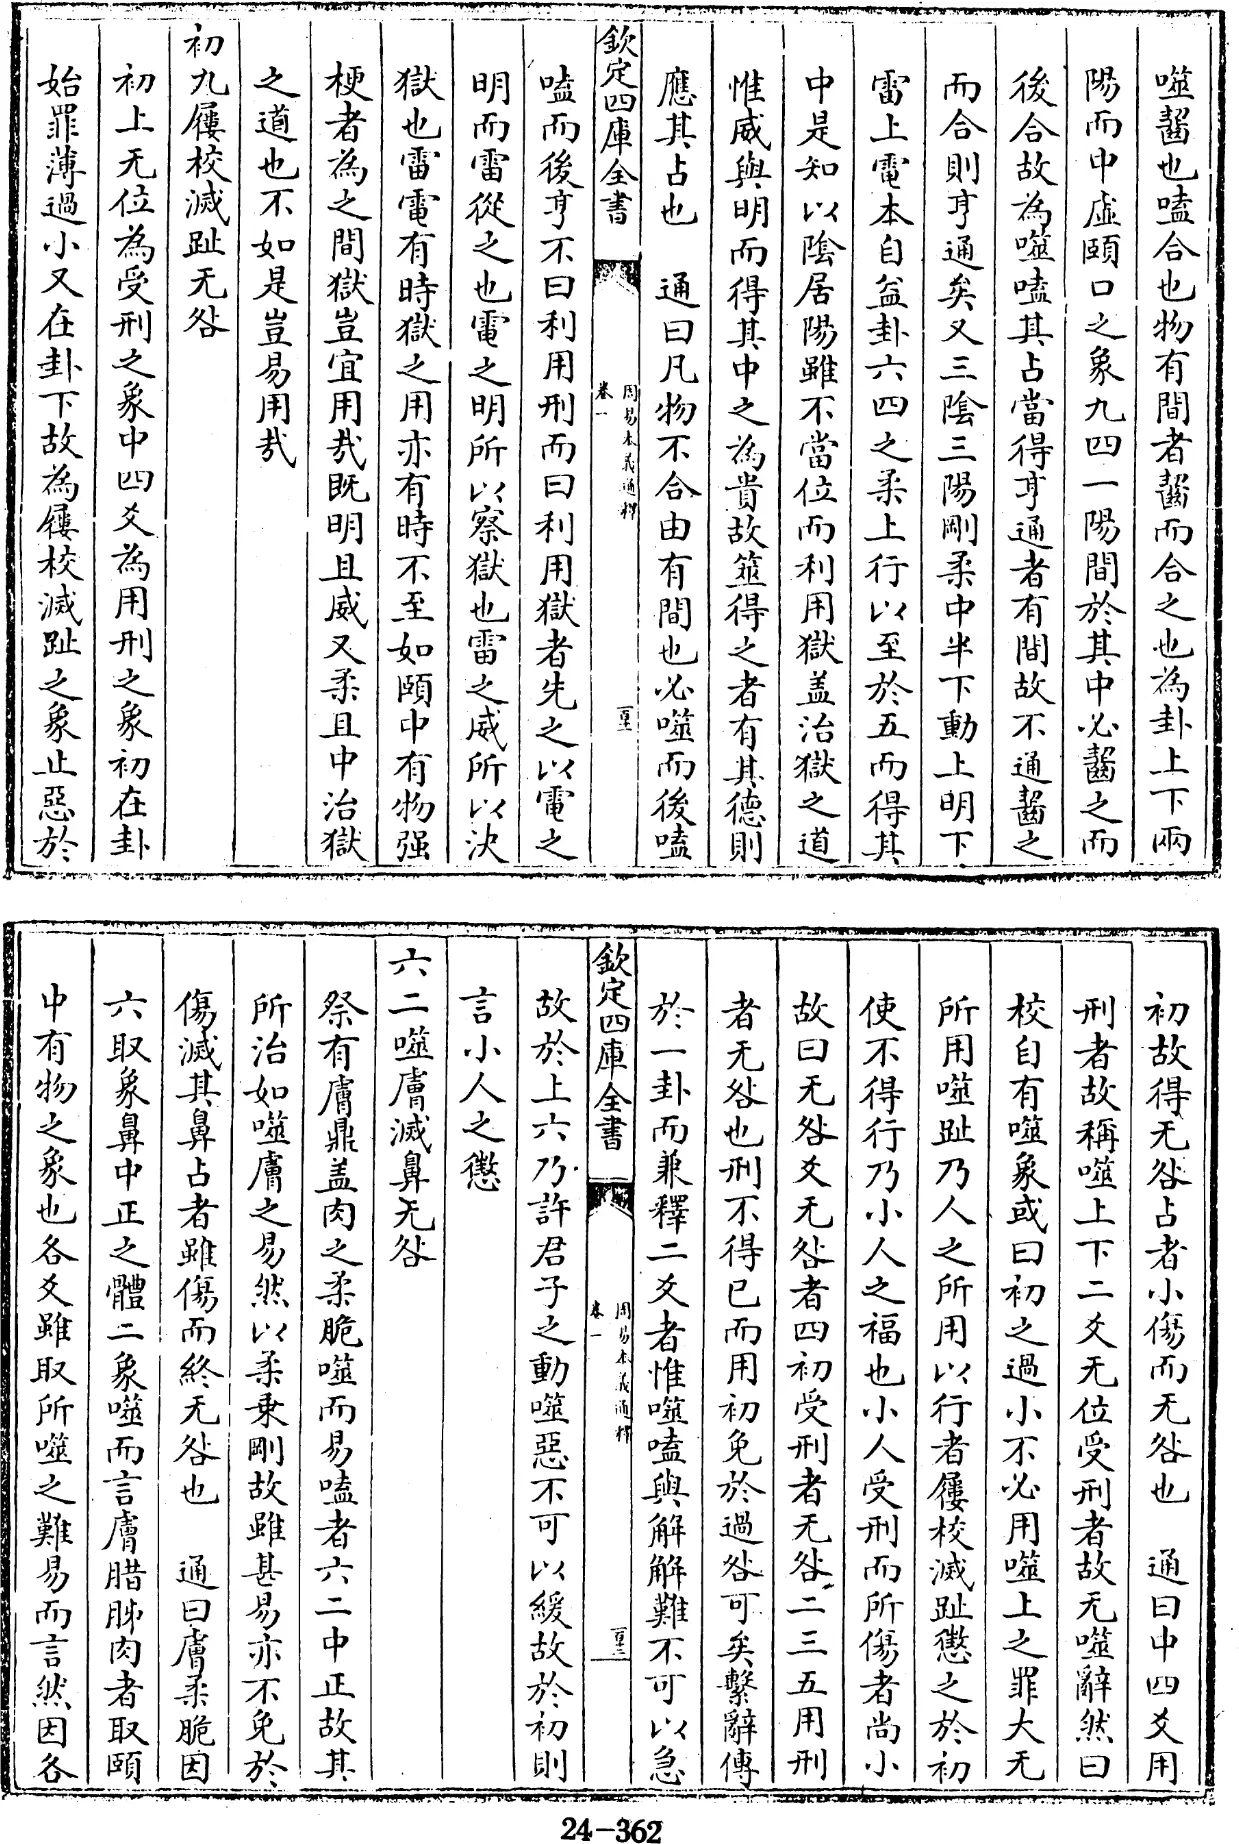 噬齧也嗑合也物有間者齧而合之也為卦上下兩
陽而中虛頤口之象九四一陽間於其中必齧之而
後合故為噬嗑其占當得亨通者有間故不通齧之
而合則亨通矣又三陰三陽剛柔中半下動上明下
雷上電本自益卦六四之柔上行以至於五而得其
中是知以陰居陽雖不當位而利用獄盖治獄之道
惟威與明而得其中之為貴故筮得之者有其德則
應其占也　通曰凡物不合由有間也必噬而後嗑
欽定四庫全書
周易本義通釋
卷一
百二
嗑而後亨不曰利用刑而曰利用獄者先之以電之
明而雷從之也電之明所以察獄也雷之威所以決
獄也雷電有時獄之用亦有時不至如頤中有物强
梗者為之間獄豈宜用哉既明且威又柔且中治獄
之道也不如是豈易用哉
初九屨校滅趾无咎
初上无位為受刑之象中四爻為用刑之象初在卦
始罪薄過小又在卦下故為屨校滅趾之象止惡於
初故得无咎占者小傷而无咎也　通曰中四爻用
刑者故稱噬上下二爻无位受刑者故无噬辭然曰
校自有噬象或曰初之過小不必用噬上之罪大无
所用噬趾乃人之所用以行者屨校滅趾懲之於初
使不得行乃小人之福也小人受刑而所傷者尚小
故曰无咎爻无咎者四初受刑者无咎二三五用刑
者无咎也刑不得已而用初免於過咎可矣繫辭傳
於一卦而兼釋二爻者惟噬嗑與解解難不可以急
欽定四庫全書
周易本義通釋
卷一
百三
故於上六乃許君子之動噬惡不可以緩故於初則
言小人之懲
六二噬膚滅鼻无咎
祭有膚鼎盖肉之柔脆噬而易嗑者六二中正故其
所治如噬膚之易然以柔乗剛故雖甚易亦不免於
傷滅其鼻占者雖傷而終无咎也　通曰膚柔脆因
六取象鼻中正之體二象噬而言膚腊胏肉者取頤
中有物之象也各爻雖取所噬之難易而言然因各
24-362